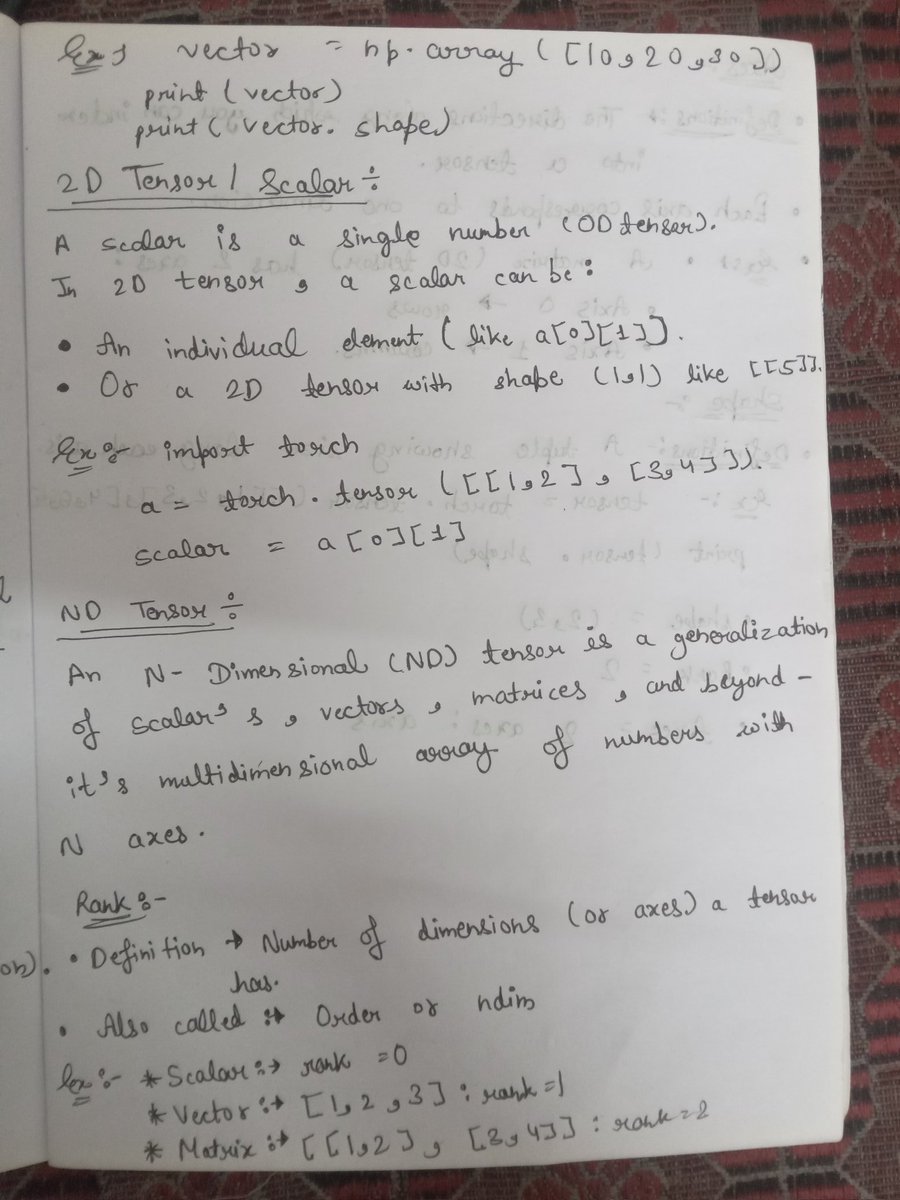 Ex: vector = np.array([10,20,30])
print(vector)
print(vector.shape)
2D Tensor / Scalar :-
A scalar is a single number (0D tensor).
In 2D tensor, a scalar can be:
• An individual element (like a[0][1]].
• Or a 2D tensor with shape (1,1) like [[5]].
Ex:- import torch
a = torch.tensor([[1,2], [3,4]]).
scalar = a[0][1]
ND Tensor :-
An N-Dimensional (ND) tensor is a generalization
of scalar's s, vectors, matrices, and beyond -
it's multidimensional array of numbers with
N axes.
Rank :-
• Definition → Number of dimensions (or axes) a tensor
has.
• Also called :→ Order or ndim
Ex:- * Scalar :→ rank = 0
* Vector :→ [1,2,3] : rank=1
* Matrix :→ [[1,2], [3,4]] : rank=2
on).